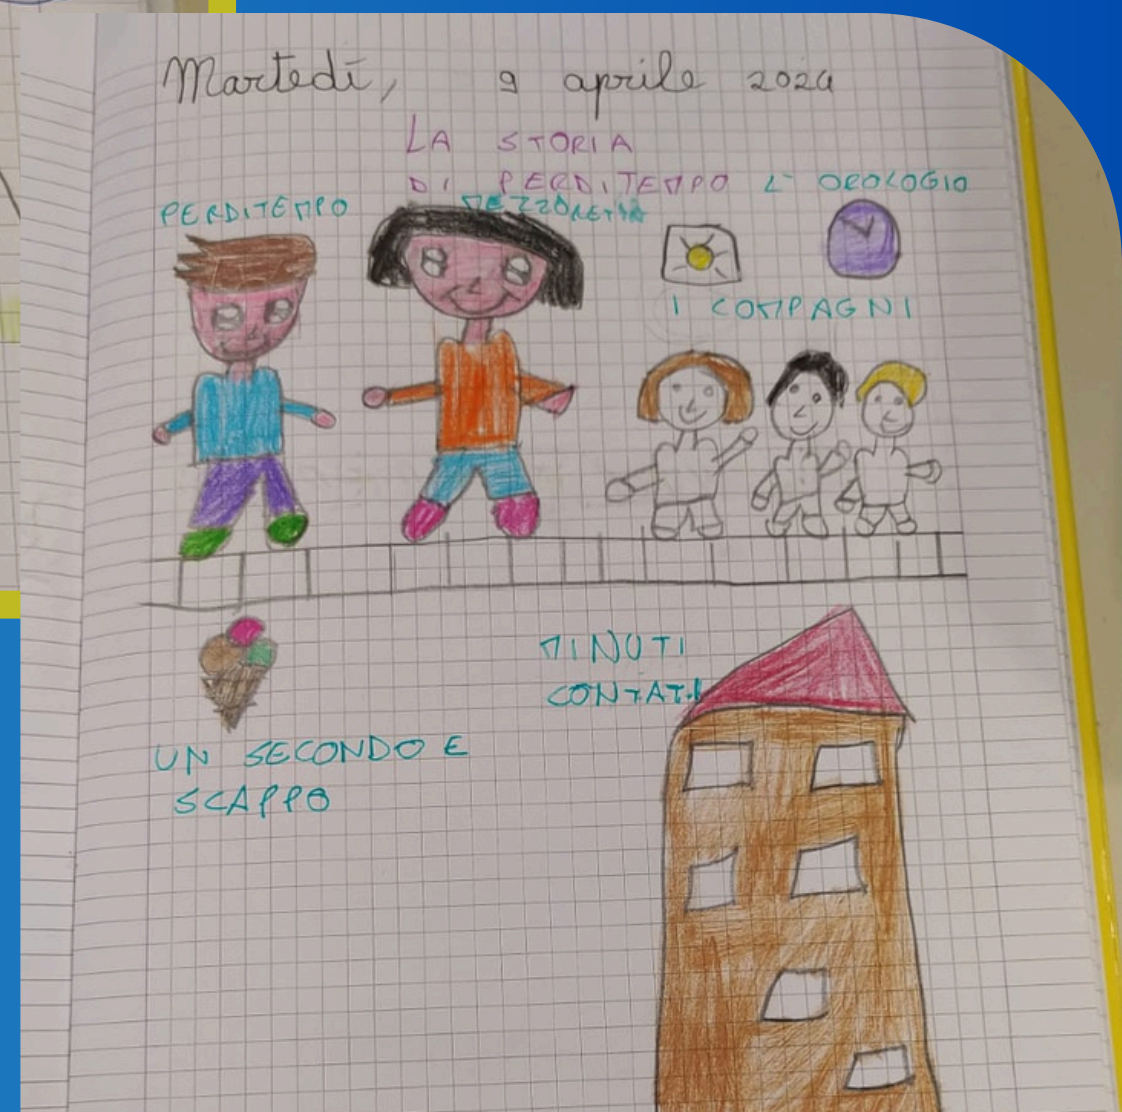 Martedì, 9 aprile 2024
LA STORIA
DI PERDITEMPO
L'OROLOGIO
PERDITEMPO
MEZZORETTA
I COMPAGNI
MINUTI
CONTATI
UN SECONDO E
SCAPPO